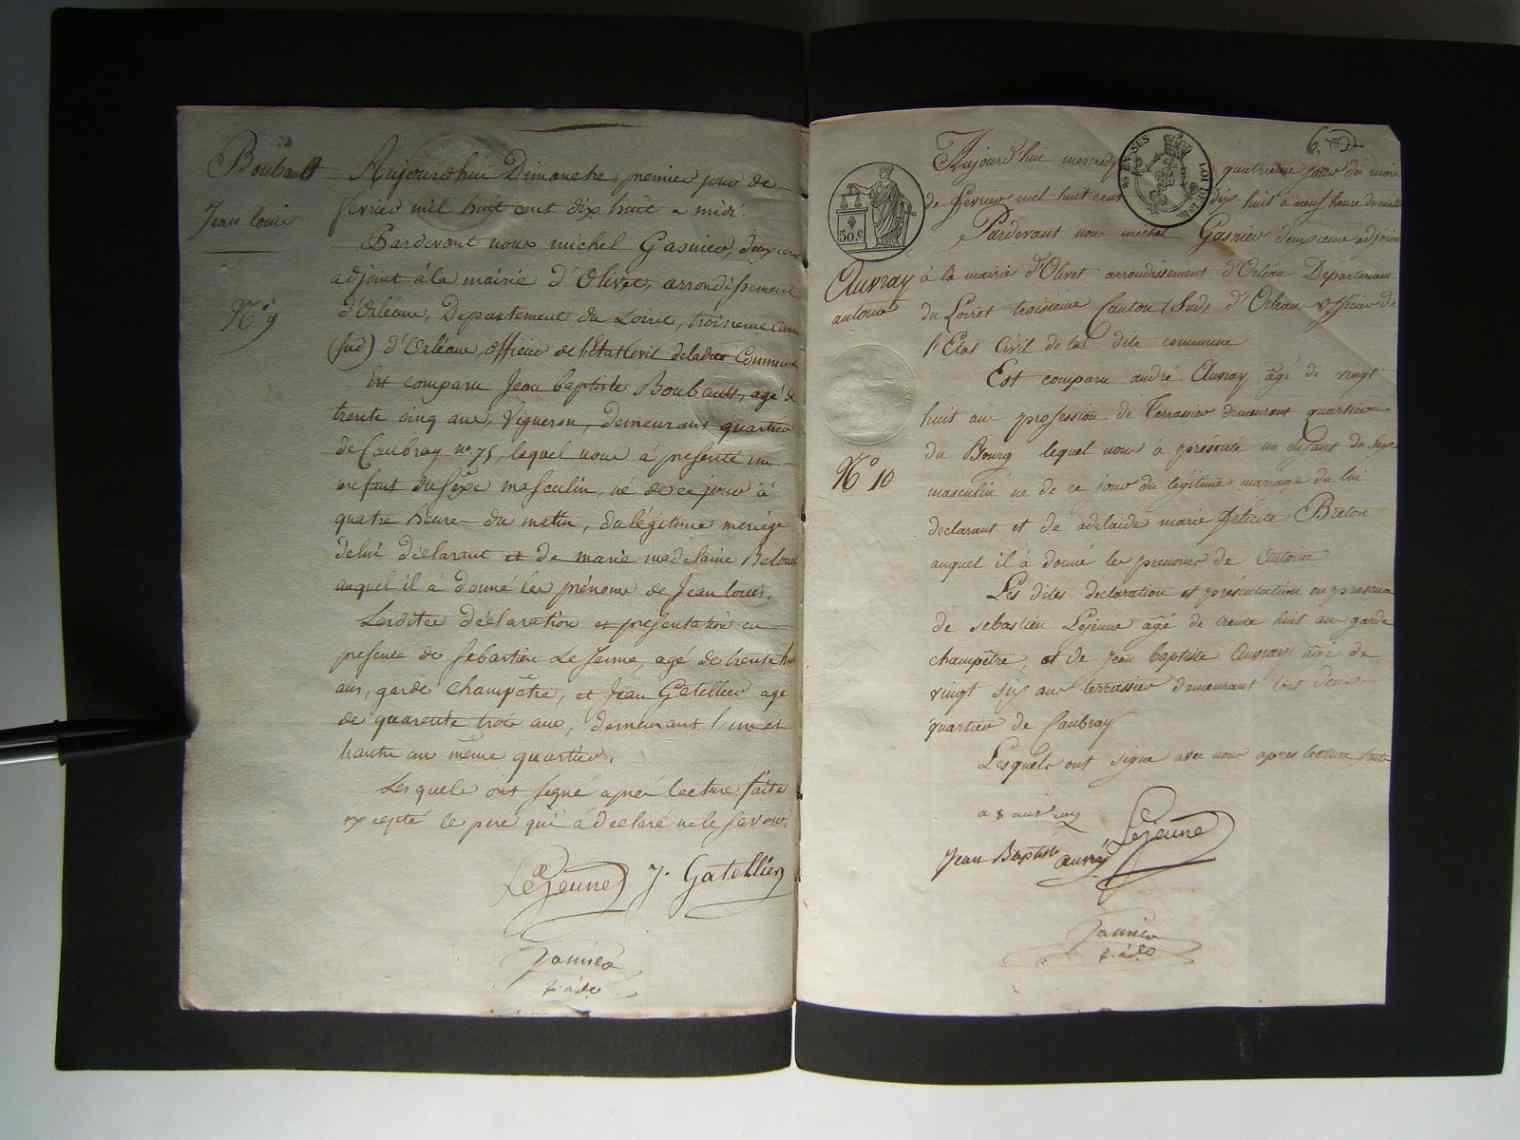 Boubault
Jean louis
N.º 9
Aujourd'hui Dimanche, premier jour de
fevrier mil huit cent dix huit a midi.
Pardevant nous michel Gasnier, deuxieme
adjoint à la mairie d'Olivet, arrondissement
d'Orléans, Departement du Loiret, troisieme Canton
(sud) d'Orléans, officier de l'Etat Civil de ladite Commune
Est comparu Jean baptiste Boubault, agé de
trente cinq ans, Vigneron, demeurant quartier
de Caubray n.º 75, lequel nous a presenté un
enfant du sexe masculin, né de ce jour à
quatre heure du matin, du légitime mariage
de lui déclarant et de marie madelaine
auquel il à donné les prénoms de Jean louis.
Lesdites déclaration et présentation en
presence de sebastien LeJeune, agé de trente huit
ans, garde champêtre, et Jean Gatellier agé
de quarente trois ans, demeurant l'un et
l'autre au même quartier.
Lesquels ont signé après lecture faite
excepté le pere qui a déclaré ne le savoir.
LeJeune J. Gatellier
Gasnier
6
Aujourd'hui mercredy quatrieme jour du mois
de fevrier mil huit cent dix huit à neuf heure du matin
Pardevant nous michel Gasnier deuxieme adjoint
à la mairie d'Olivet arrondissement d'Orléans Departement
du Loiret troisieme Canton (Sud) d'Orléans officier de
l'Etat Civil de la dite commune
50.c
Auvray
antoine
N.º 10
Est comparu andré Auvray, agé de vingt
huit ans profession de Terrassier demeurant quartier
du Bourg lequel nous à présenté un enfant du sexe
masculin né de ce jour du légitime mariage du lui
declarant et de adelaide marie félicité Breton
auquel il à donné les prenoms de Antoine
Les dites declaration et présentation en presence
de sébastien Lejeune agé de trente huit ans garde
champêtre, et de Jean baptiste Auvray agé de
vingt six ans terrassier demeurant tout deux
quartier de Caubray
Lesquels ont signé avec nous apres lecture faite
Lejeune
Jean Baptiste auvray
Gasnier